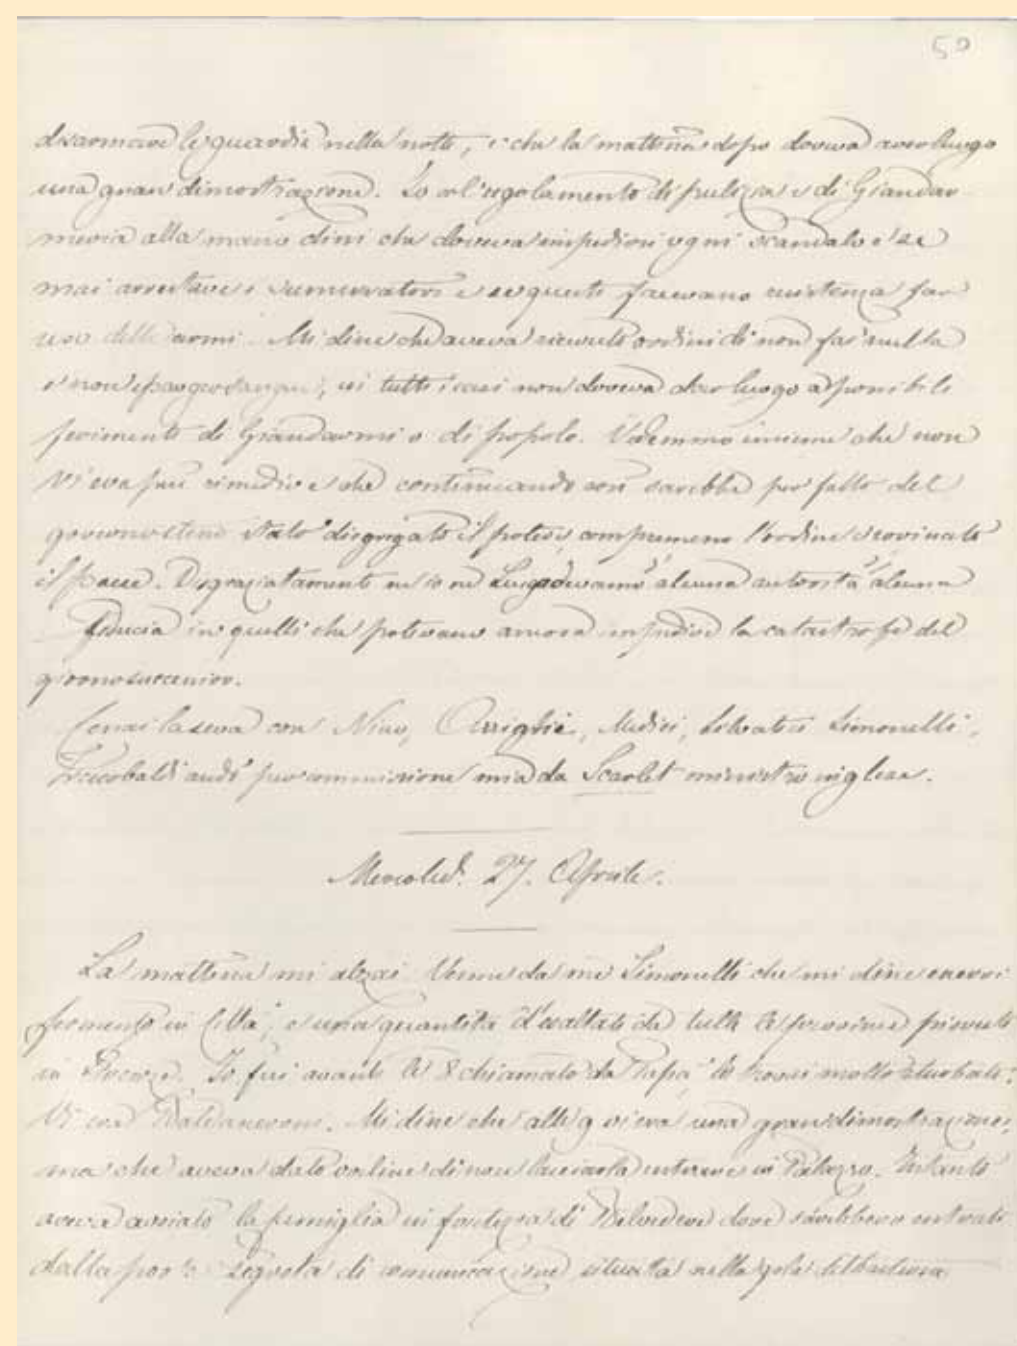 50
disarmare le guardie nella notte, e che la mattina dopo doveva aver luogo
una gran dimostrazione. Io col regolamento di pulizia e di Giandar
meria alla mano dissi che doveva impedirsi ogni scandalo e se
mai arrestare i sommovatori e se questi facevano resistenza far
uso delle armi. Mi disse che aveva ricevuto ordini di non far nulla
e non spargere sangue, in tutti i casi non doveva dar luogo a possibili
ferimenti di Giandarmi o di popolo. Vedemmo insieme che non
vi era più rimedio e che continuando così sarebbe per fatto del
governo stesso stato disgregato il potere, compromesso l'ordine e rovinato
il paese. Disgraziatamente nè io nè avevamo alcuna autorità alcuna
fiducia in quelli che potevano ancora impedire la catastrofe del
giorno successivo.
Cenai la sera con Nino, Arrighi, Medici, Silvatici Simonelli,
andò per commissione mia da Scarlet ministro inglese.
Mercoled. 27. Aprile.
La mattina mi alzai Venne da me Simonelli che mi disse esservi
fermento in Città, e una quantità d'esaltati da tutte le provincie piovuti
in Firenze. Io fui avanti le 8 chiamato da Papà lo trovai molto sturbato:
Vi era Baldasseroni. Mi disse che alle 9 vi era una gran dimostrazione,
ma che aveva dato ordine di non lasciarla entrare in Palazzo. Intanto
aveva avviato la famiglia in fortezza di Belvedere dove sarebbero entrati
dalla porta segreta di comunicazione situata nella gola